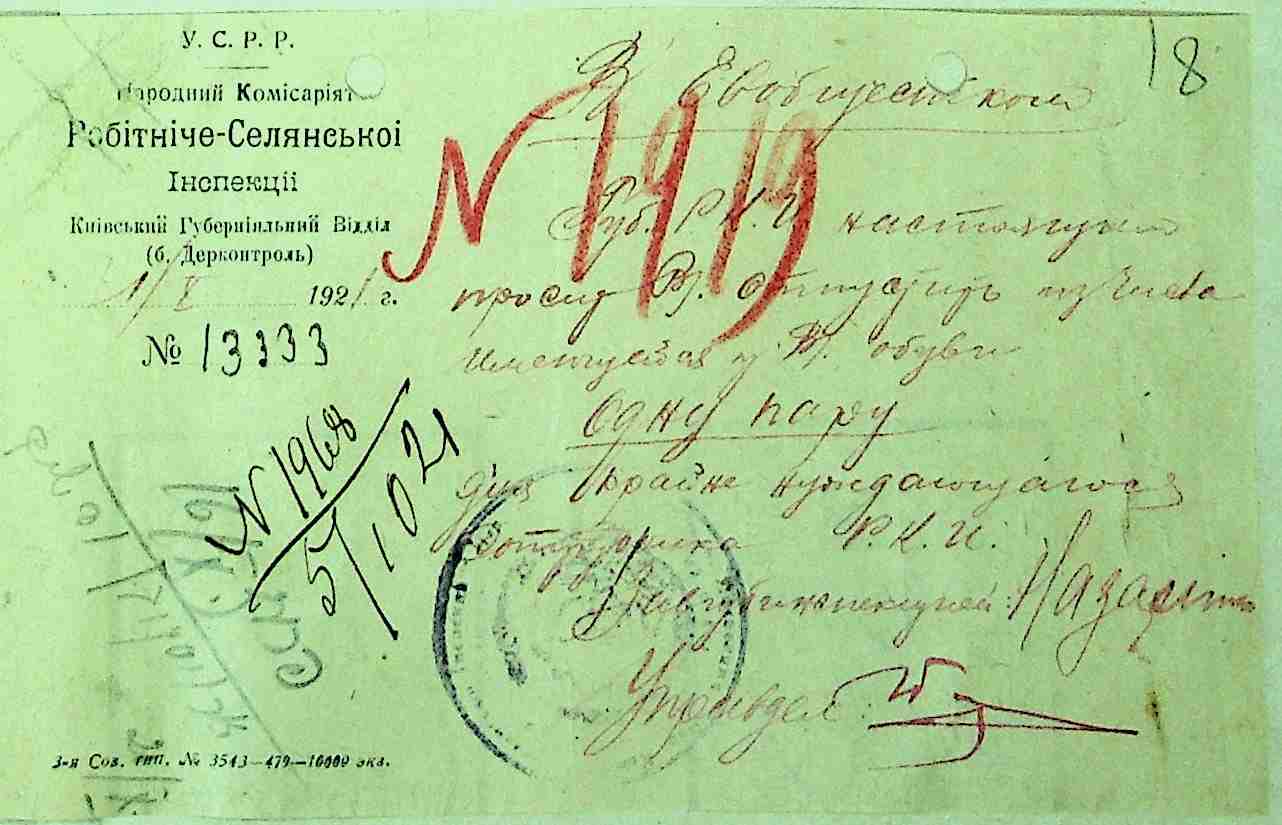 У. С. Р. Р.
Народний Комісаріят
Робітниче-Селянської
Інспекції
Київський Губерніяльний Відділ
(б. Дерконтроль)
1/X 1921 г.
№ 13333
18
В Евобщестком
N 1919
Губ. Р.К.И. настоящим
просит В. отпустить из числа
имеющейся у В. обуви
одну пару
для крайне нуждающагося
сотрудника Р.К.И.
Завгубинспекцией
Управдел
N 1968
5/10 21
3-я Сов. тип. № 3543—479—10000 экз.